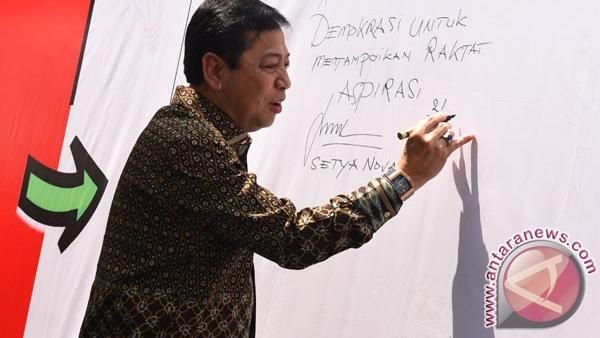 DEMOKRASI UNTUK
MENYAMPAIKAN RAKYAT
ASPIRASI
21
SETYA NOVA
www.antaranews.com